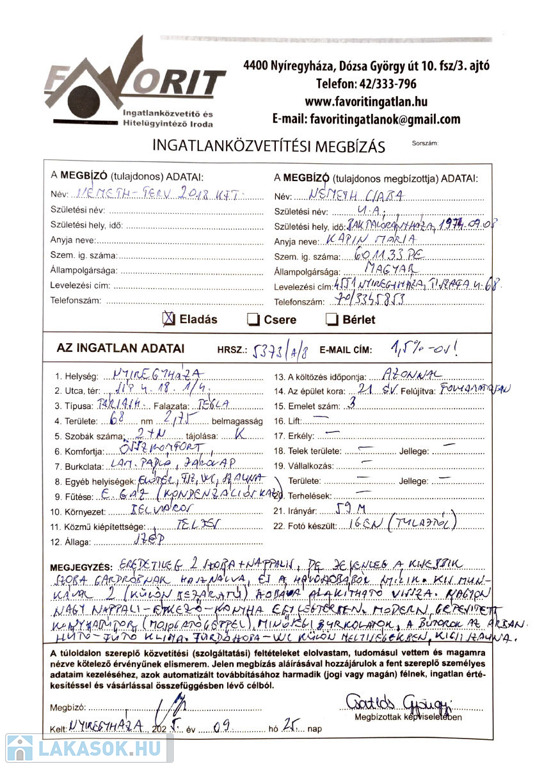 FAVORIT
Ingatlanközvetítő és
Hitelügyintéző Iroda
4400 Nyíregyháza, Dózsa György út 10. fsz/3. ajtó
Telefon: 42/333-796
www.favoritingatlan.hu
E-mail: favoritingatlanok@gmail.com
INGATLANKÖZVETÍTÉSI MEGBÍZÁS Sorszám
A MEGBÍZÓ (tulajdonos) ADATAI:
Név: NÉMETH-TERV 2018 KFT.
Születési név:
Születési hely, idő:
Anyja neve:
Szem. ig. száma:
Állampolgársága:
Levelezési cím:
Telefonszám:
A MEGBÍZÓ (tulajdonos megbízottja) ADATAI:
Név: NÉMETH CSABA
Születési név: U.A.
Születési hely, idő: BAKTALÓRÁNTHÁZA, 1974.09.08
Anyja neve: KAPIN MÁRIA
Szem. ig. száma: 601133PE
Állampolgársága: MAGYAR
Levelezési cím: 4551 NYÍREGYHÁZA, u. 68.
Telefonszám: 70/3345853
X Eladás Csere Bérlet
AZ INGATLAN ADATAI HRSZ.: 5373/A/8 E-MAIL CÍM: 1,5%-os!
1. Helység: NYÍREGYHÁZA
2. Utca, tér: 18. 1/4.
3. Típusa: Falazata: TÉGLA
4. Területe: 68 nm 2,75 belmagasság
5. Szobák száma: 2+N tájolása: K
6. Komfortja: ÖSSZKOMFORT
7. Burkolata: LAM. PADLÓ, JÁRÓLAP
8. Egyéb helységek: ELŐTÉR, WC, SZAUNA
9. Fűtése: E. GÁZ (KONDENZÁCIÓS KAZÁN)
10. Környezet: BELVÁROS
11. Közmű kiépítettsége: TELJES
12. Állaga: SZÉP
13. A költözés időpontja: AZONNAL
14. Az épület kora: 21 ÉV Felújítva: FOLYAMATOSAN
15. Emelet szám: 3
16. Lift: —
17. Erkély: —
18. Telek területe: — Jellege: —
19. Vállalkozás: —
Területe: — Jellege: —
20. Terhelések: —
21. Irányár: 59 M
22. Fotó készült: IGEN
MEGJEGYZÉS: EREDETILEG 2 SZOBA + NAPPALI, DE JELENLEG A KISEBBIK
SZOBA GARDRÓBNAK HASZNÁLVA, ÉS A HÁLÓSZOBÁBÓL NYÍLIK. KIS MUN-
KÁVAL 2 (KÜLÖN BEJÁRATÚ) SZOBÁVÁ ALAKÍTHATÓ VISSZA. NAGYON
NAGY NAPPALI-ÉTKEZŐ-KONYHA EGY LÉGTÉRBEN, MODERN, BEÉPÍTETT
KONYHABÚTOR (MOSOGATÓGÉPPEL), MINŐSÉGI BURKOLATOK, A BÚTOROK AZ ÁRBAN.
HŰTŐ-FŰTŐ KLÍMA. FÜRDŐSZOBA-WC KÜLÖN HELYISÉGEKBEN, KICSI SZAUNA.
A túloldalon szereplő közvetítési (szolgáltatási) feltételeket elolvastam, tudomásul vettem és magamra
nézve kötelező érvényűnek elismerem. Jelen megbízás aláírásával hozzájárulok a fent szereplő személyes
adataim kezeléséhez, azok automatizált továbbításához harmadik (jogi vagy magán) félnek, ingatlan érté-
kesítéssel és vásárlással összefüggésben lévő célból.
Megbízó:
Csatlós Györgyi
Megbízottak képviseletében
Kelt: NYÍREGYHÁZA 2025. év 09 hó 25. nap
LAKASOK.HU